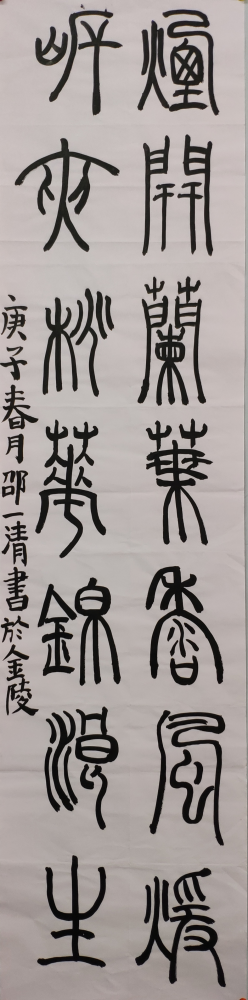 煙開蘭葉香風暖
岸夾桃華錦浪生
庚子春月邵一清書於金陵